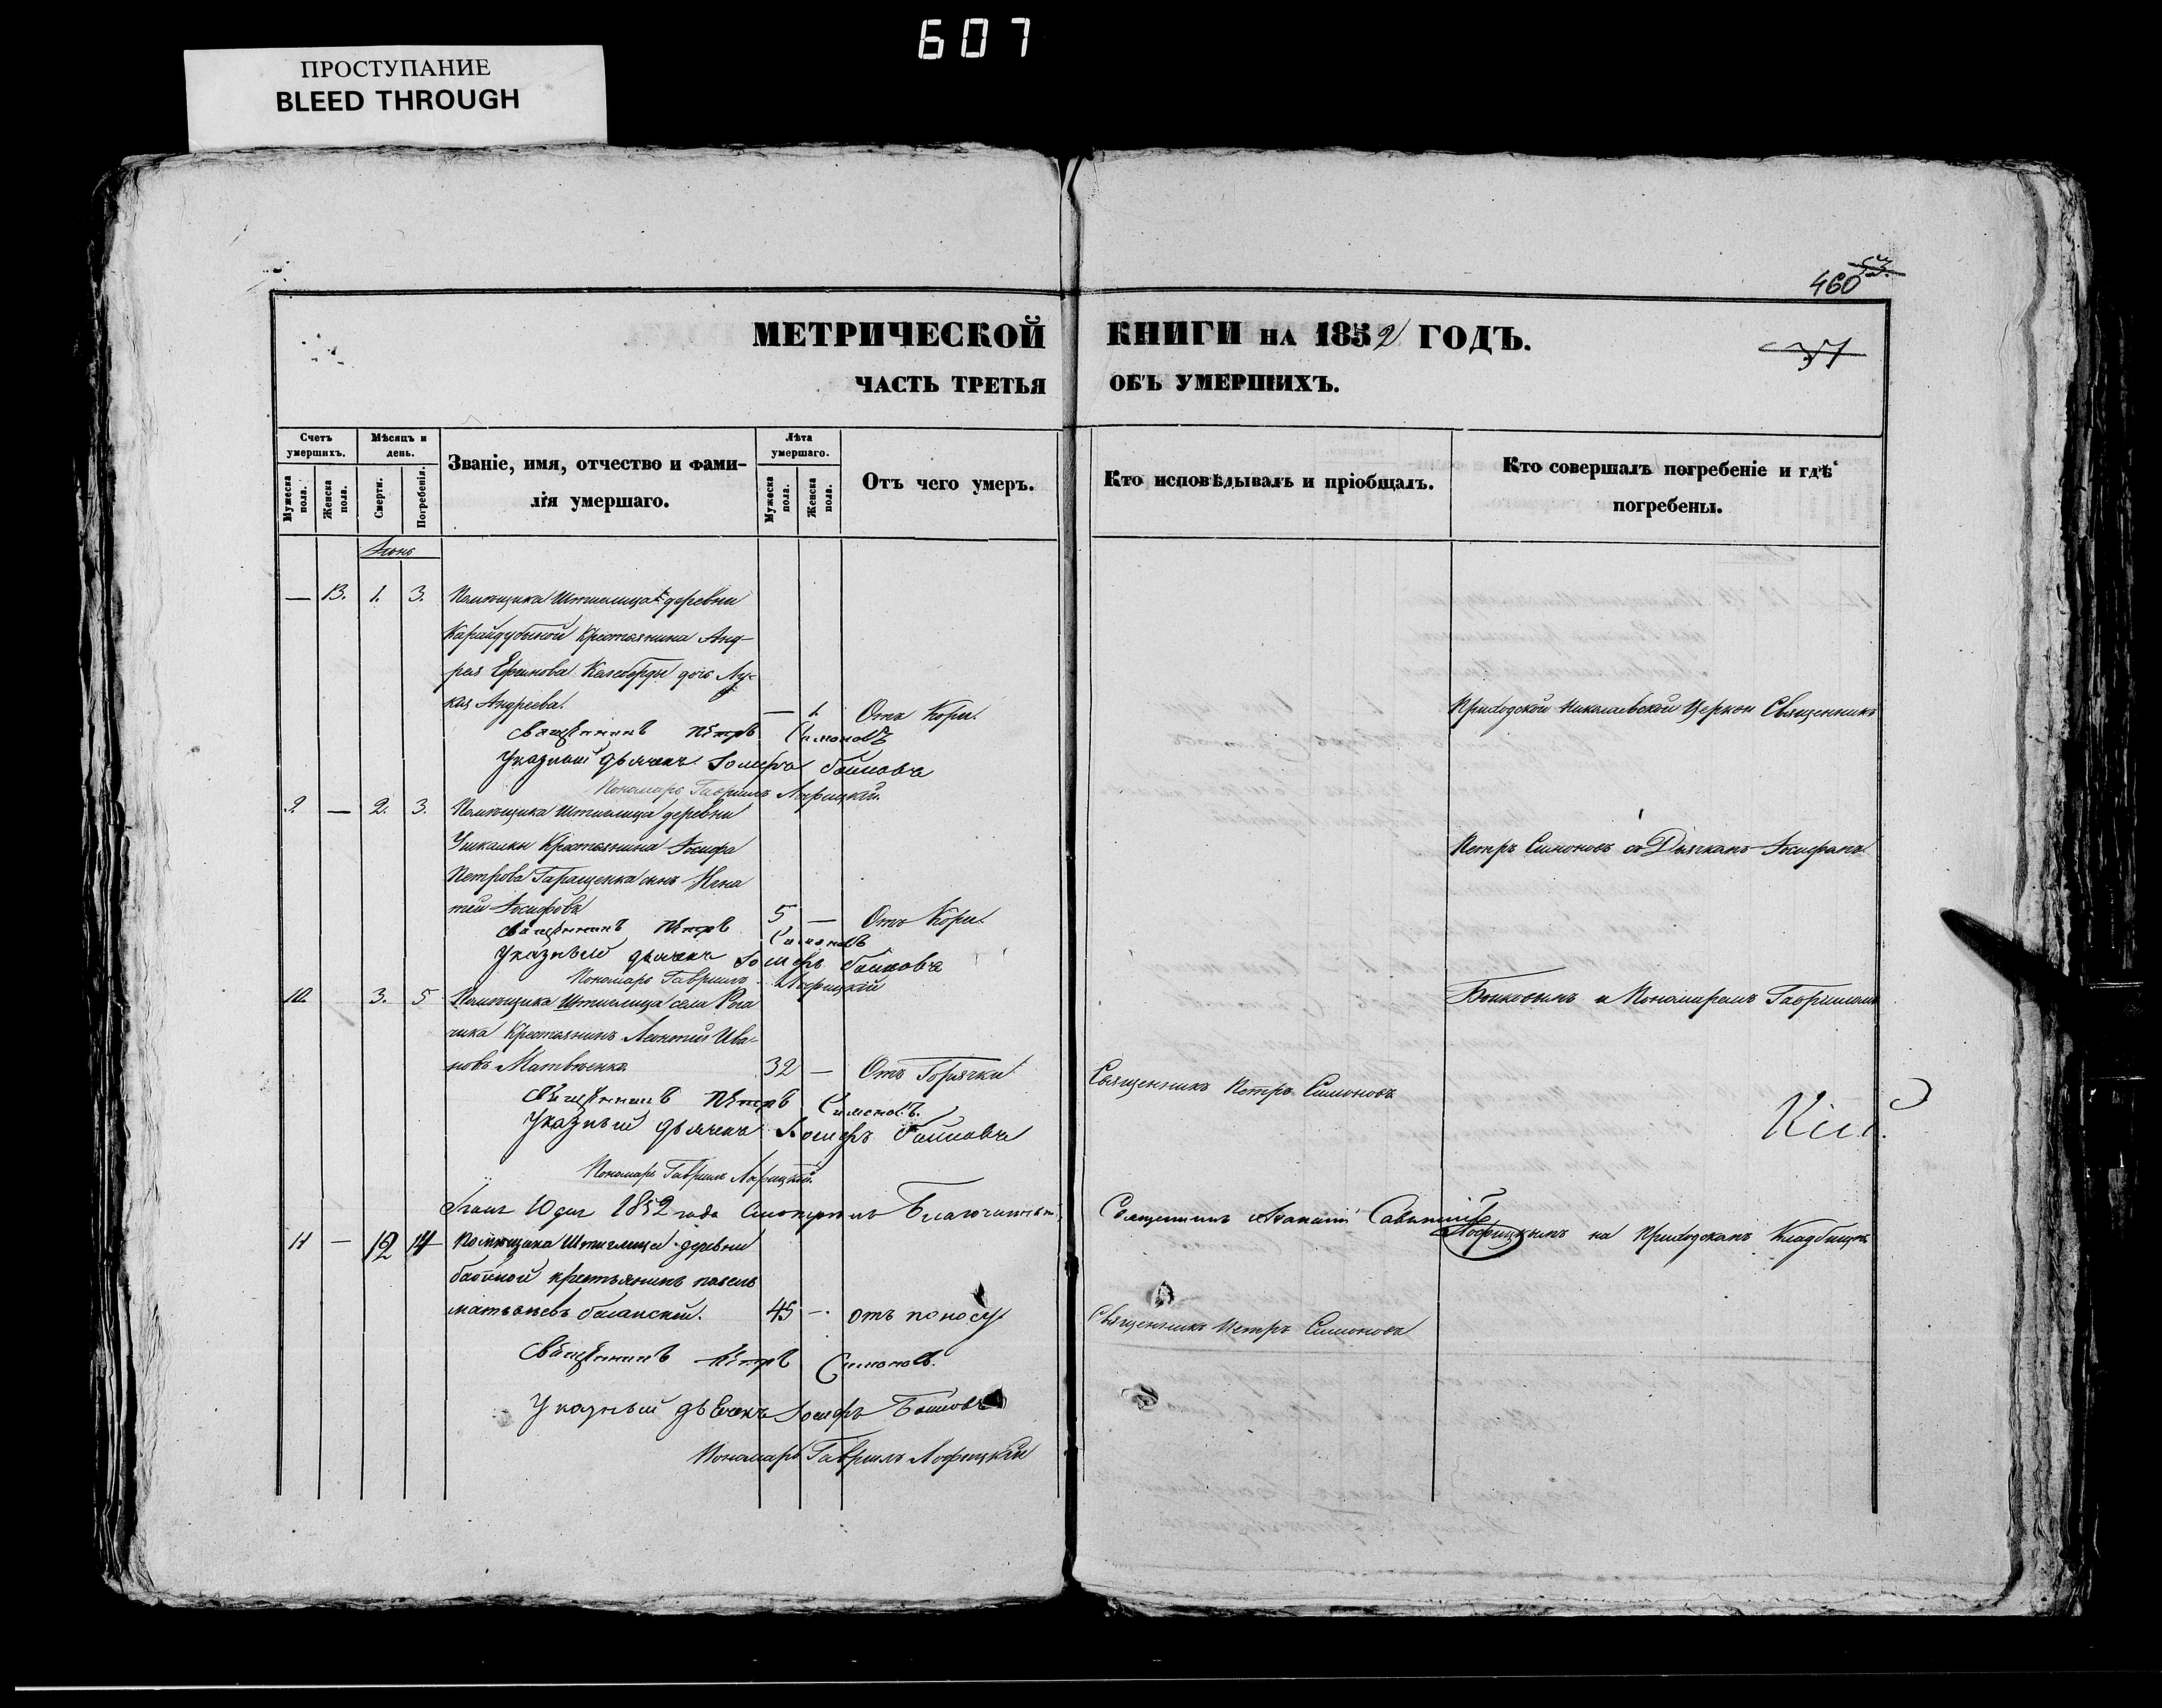 607
ПРОСТУПАНИЕ
BLEED THROUGH
460 53.
МЕТРИЧЕСКОЙ КНИГИ НА 1852 ГОДЪ.
37
ЧАСТЬ ТРЕТЬЯ ОБЪ УМЕРШИХЪ.
Счетъ умершихъ.
Мужеска пола.
Женска пола.
Мѣсяцъ и день.
Смерти.
Погребенія.
Званіе, имя, отчество и фами-
лія умершаго.
Лѣта умершаго.
Мужеска пола.
Женска пола.
Отъ чего умеръ.
Кто исповѣдывалъ и пріобщалъ.
Кто совершалъ погребеніе и гдѣ
погребены.
Іюнь
— 13. 1. 3. Помѣщика Штиглица деревни
Карайдубиной Крестьянина Анд-
рея Ефимова дочь Лу-
кія Андреева. — 1. Отъ Кори.
Приходской Николаевской Церкви Священникъ
Священникъ Петръ Симоновъ
Указный дьячекъ Іосифъ Бойковъ
Пономарь Гавриилъ
9 — 2. 3. Помѣщика Штиглица деревни
Ушкалки Крестьянина Іосифа
Петрова Гаращенка сынъ Игна
тій Іосифовъ 5 — Отъ Кори.
Петръ Симоновъ съ Дьячкомъ Іосифомъ
Священникъ Петръ Симоновъ
Указный дьячекъ Іосифъ Бойковъ
Пономарь Гавриилъ
10 3. 5 Помѣщика Штиглица села Рога
чика Крестьянинъ Леонтій Ива-
новъ Матвѣенко 32 — Отъ Горячки
Священникъ Петръ Симоновъ
Бойковымъ и Пономаремъ Гавриломъ
Священникъ Петръ Симоновъ.
Указный дьячекъ Іосифъ Бойковъ
Пономарь Гавриилъ
Іюля 10 дня 1852 года Смотрѣлъ Благочинный
Священникъ
11 — 12 14 Помѣщика Штиглица деревни
крестьянинъ павелъ
45 — отъ поносу
Священникъ Петръ Симоновъ
на Приходскомъ Кладбищѣ
Священникъ Петръ Симоновъ.
Указный дьячекъ Іосифъ Бойковъ
Пономарь Гавриилъ Лофицкій